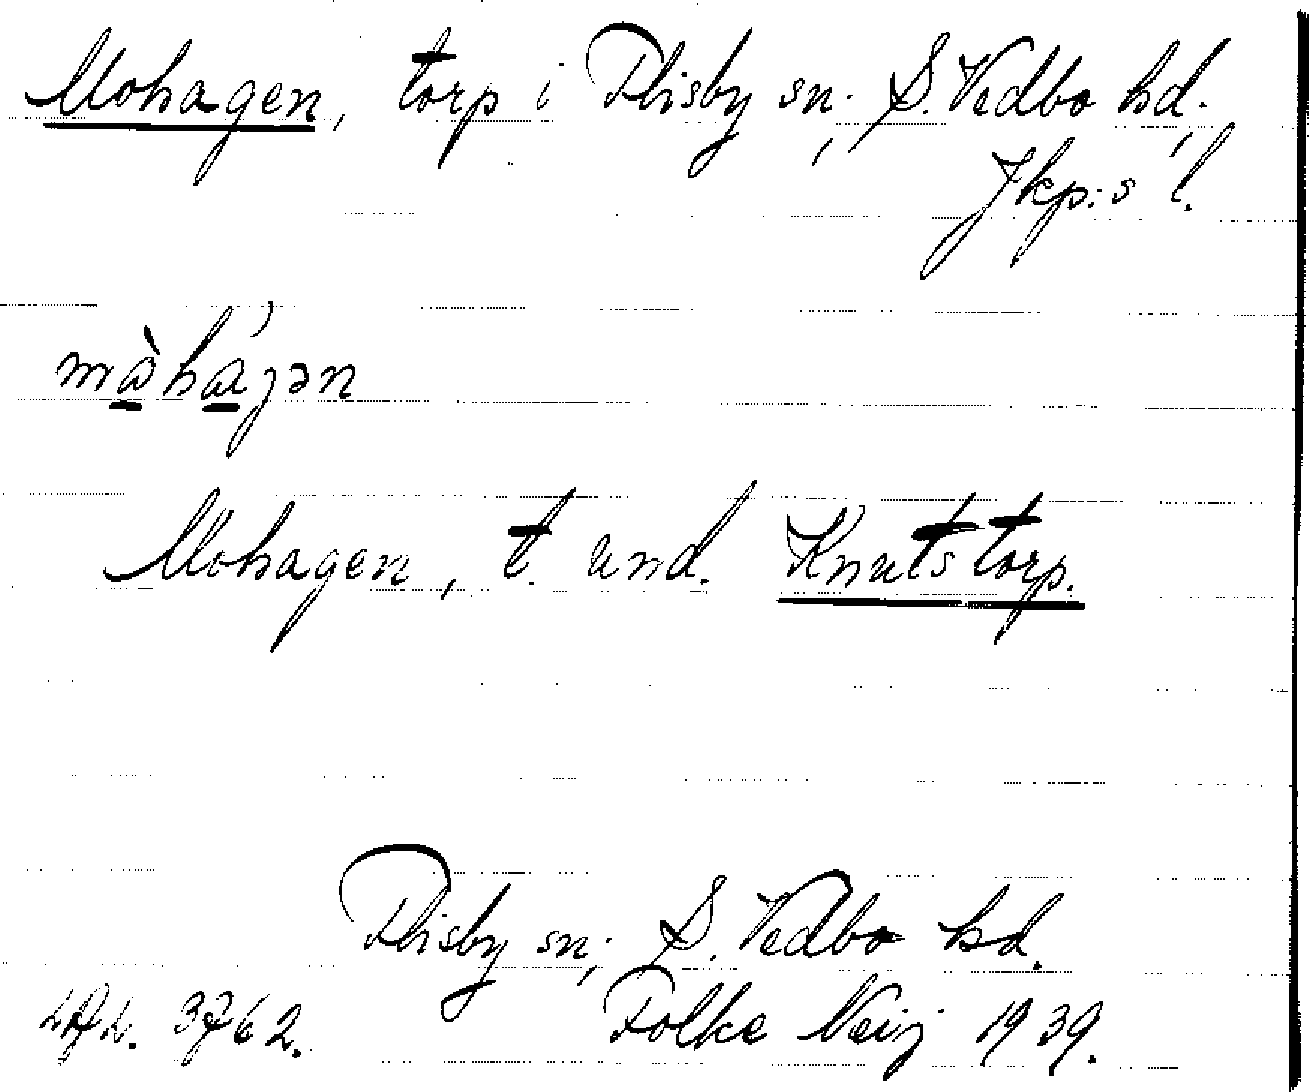 Mohagen, torp i Flisby sn., S. Vedbo hd.,
Jkp:s l.
mòhájən
Mohagen, t. und. Knutstorp.
Flisby sn., S. Vedbo hd.
3762. Folke Neij 1939.